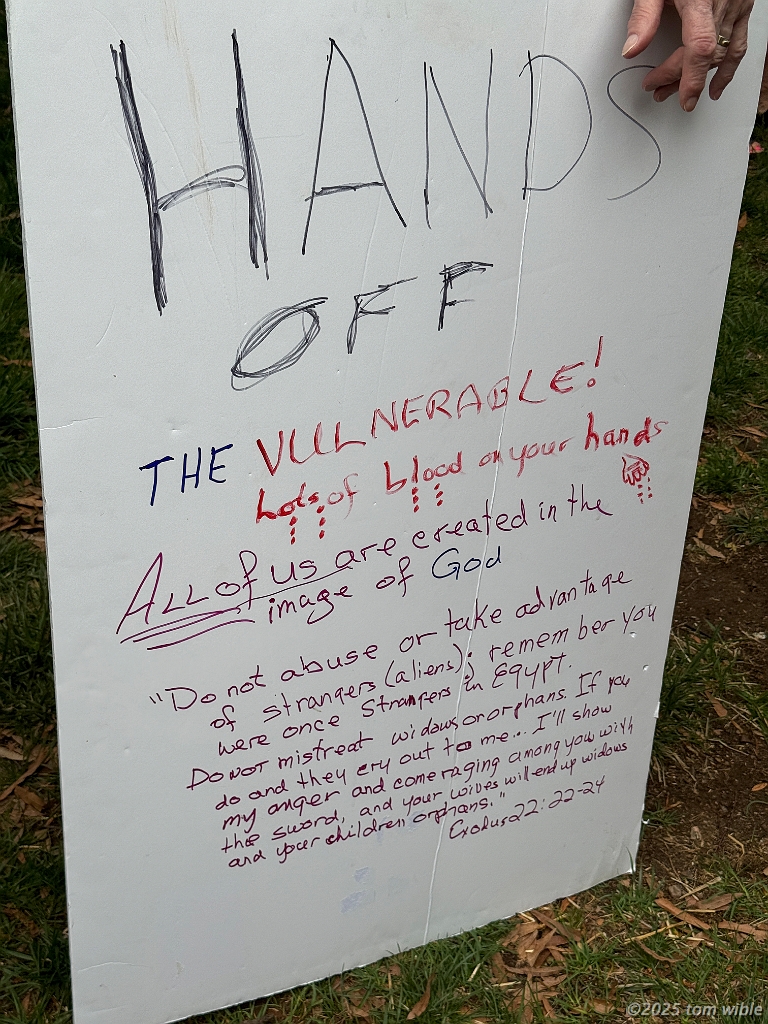 HANDS
OFF
THE VULNERABLE!
Lots of blood on your hands
ALL of us are created in the
image of God
"Do not abuse or take advantage
of strangers (aliens); remember you
were once Strangers in EGYPT.
Do not mistreat widows or orphans. If you
do and they cry out to me... I'll show
my anger and come raging among you with
the sword, and your wives will end up widows
and your children orphans."
Exodus 22:22-24
©2025 tom wible